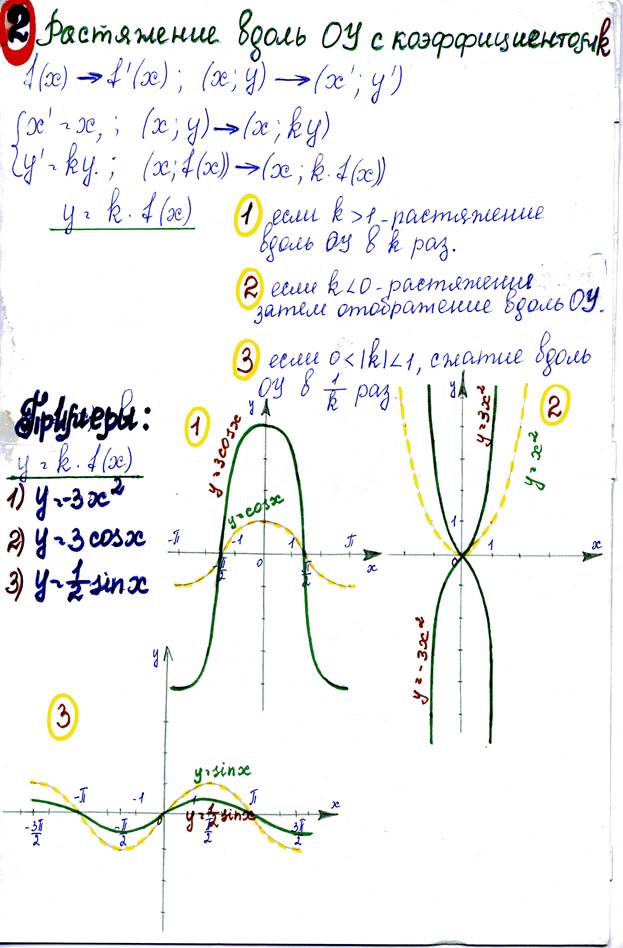 2 Растяжение вдоль ОУ с коэффициентом k
f(x) → f'(x) ; (x; y) → (x'; y')
{ x' = x, ; (x; y) → (x; ky)
{ y' = ky. ; (x; f(x)) → (x; k·f(x))
y = k·f(x)
1 если k>1 - растяжение
вдоль ОУ в k раз.
2 если k<0 - растяжение
затем отображение вдоль ОУ.
3 если 0<|k|<1, сжатие вдоль
ОУ в 1/k раз.
Примеры:
y = k·f(x)
1) y=-3x²
2) y=3cosx
3) y=1/2 sinx
1
y
y=3cosx
y=cosx
-π
-π/2
-1
0
1
π/2
π
x
2
y
y=3x²
y=x²
1
0
1
x
y=-3x²
3
y
y=sinx
y=1/2 sinx
-3π/2
-π
-π/2
-1
0
1
π/2
π
3π/2
x